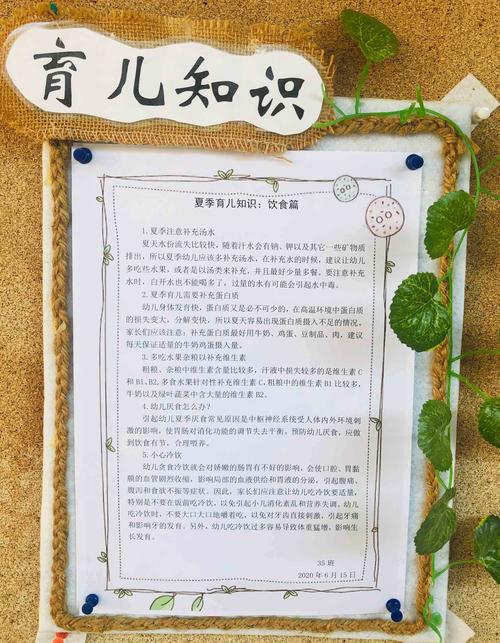 育儿知识
夏季育儿知识：饮食篇
1.夏季注意补充汤水
夏天水份流失比较快，随着汗水会有钠、钾以及其它一些矿物质
排出，所以夏季幼儿应该多补充汤水。在补充水的时候，建议让幼儿
多吃些水果，或者是以汤类来补充，并且最好少量多餐。要注意补充
水时，白开水也不能喝多了，过量的水有可能会引起水中毒。
2.夏季育儿需要补充蛋白质
幼儿身体发育快，蛋白质又是必不可少的，在高温环境中蛋白质
的损失变大，分解变快，所以夏天容易出现蛋白质摄入不足的情况。
家长们应该注意：补充蛋白质最好用牛奶、鸡蛋、豆制品、肉，建议
每天保证适量的牛奶鸡蛋摄入量。
3.多吃水果杂粮以补充维生素
粗粮、杂粮中维生素含量比较多，汗液中损失较多的是维生素 C
和 B1、B2。多食水果针对性补充维生素 C，粗粮中的维生素 B1 比较多，
牛奶以及绿叶蔬菜中含大量的维生素 B2。
4.幼儿厌食怎么办？
引起幼儿夏季厌食常见原因是中枢神经系统受人体内外环境刺
激的影响，使胃肠对消化功能的调节失去平衡。预防幼儿厌食，应做
到饮食有节，合理喂养。
5.小心冷饮
幼儿贪食冷饮就会对娇嫩的肠胃有不好的影响，会使口腔、胃黏
膜的血管剧烈收缩，影响局部的血液供给和胃液的分泌，引起腹痛、
腹泻和食欲不振等症状。因此，家长们应注意让幼儿吃冷饮要适量，
特别是不要在饭前吃冷饮，以免引起小儿消化紊乱和营养失调。幼儿
吃冷饮时，不要大口大口地嚼着吃，以免对牙齿直接刺激，引起牙痛
和影响牙的发育。另外，幼儿吃冷饮过多容易导致体重猛增，影响生
长发育。
35 班
2020 年 6 月 15 日